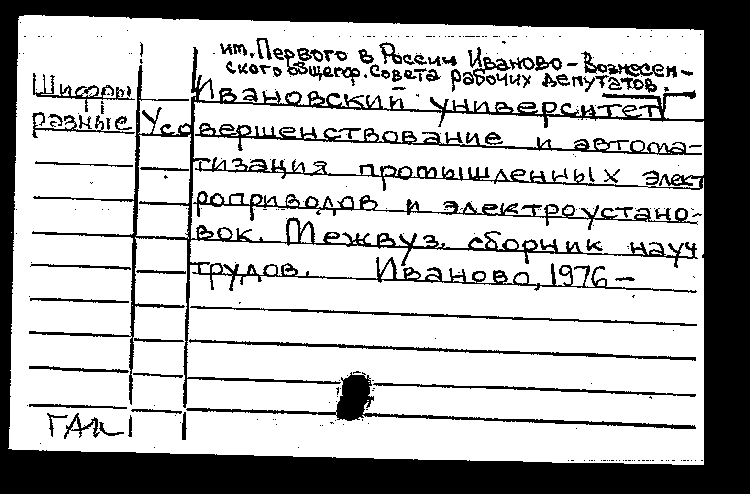 им. Первого в России Иваново-Вознесен-
ского общегор. Совета рабочих депутатов.
Шифры Ивановский университет
разные Усовершенствование и автома-
тизация промышленных элект
роприводов и электроустано-
вок. Межвуз. сборник науч.
трудов. Иваново, 1976 –
ГАК